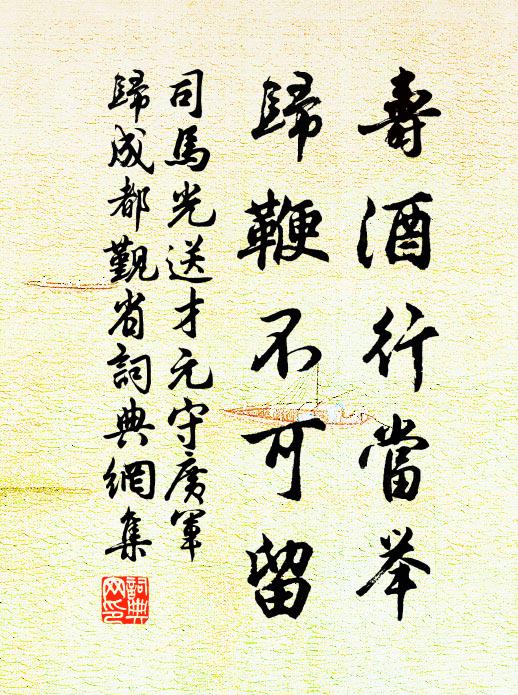 壽酒行當举
歸鞭不可留
司馬光送才元守廣軍
歸成都觐省詞典網集
詞典
网印